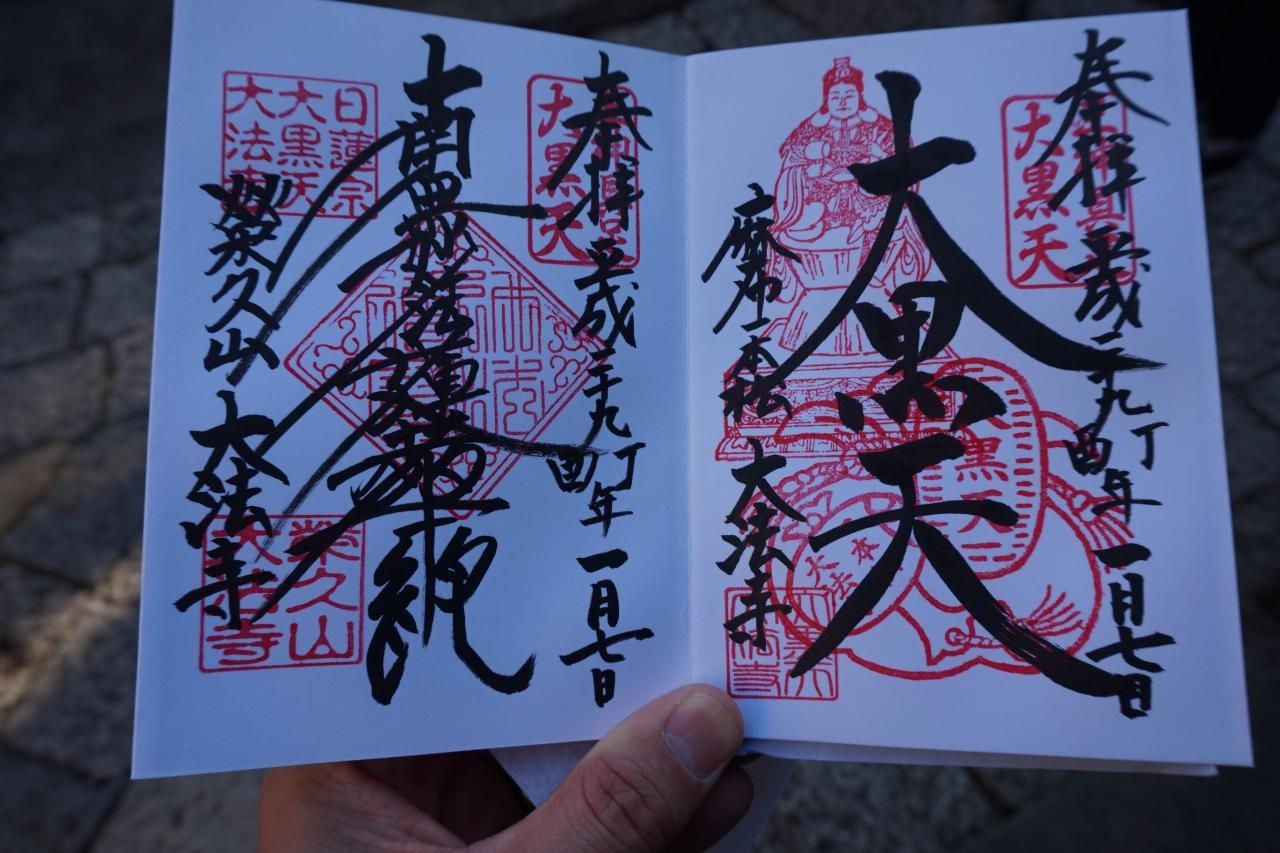 奉拝 平成二十九丁酉年 一月七日
大黒天
大黒天
麻布一本松 大法寺
大黒
奉拝 平成二十九丁酉年 一月七日
大黒天
南無妙法蓮華経
日蓮宗
大黒天
大法寺
榮久山 大法寺
榮久山
大法寺